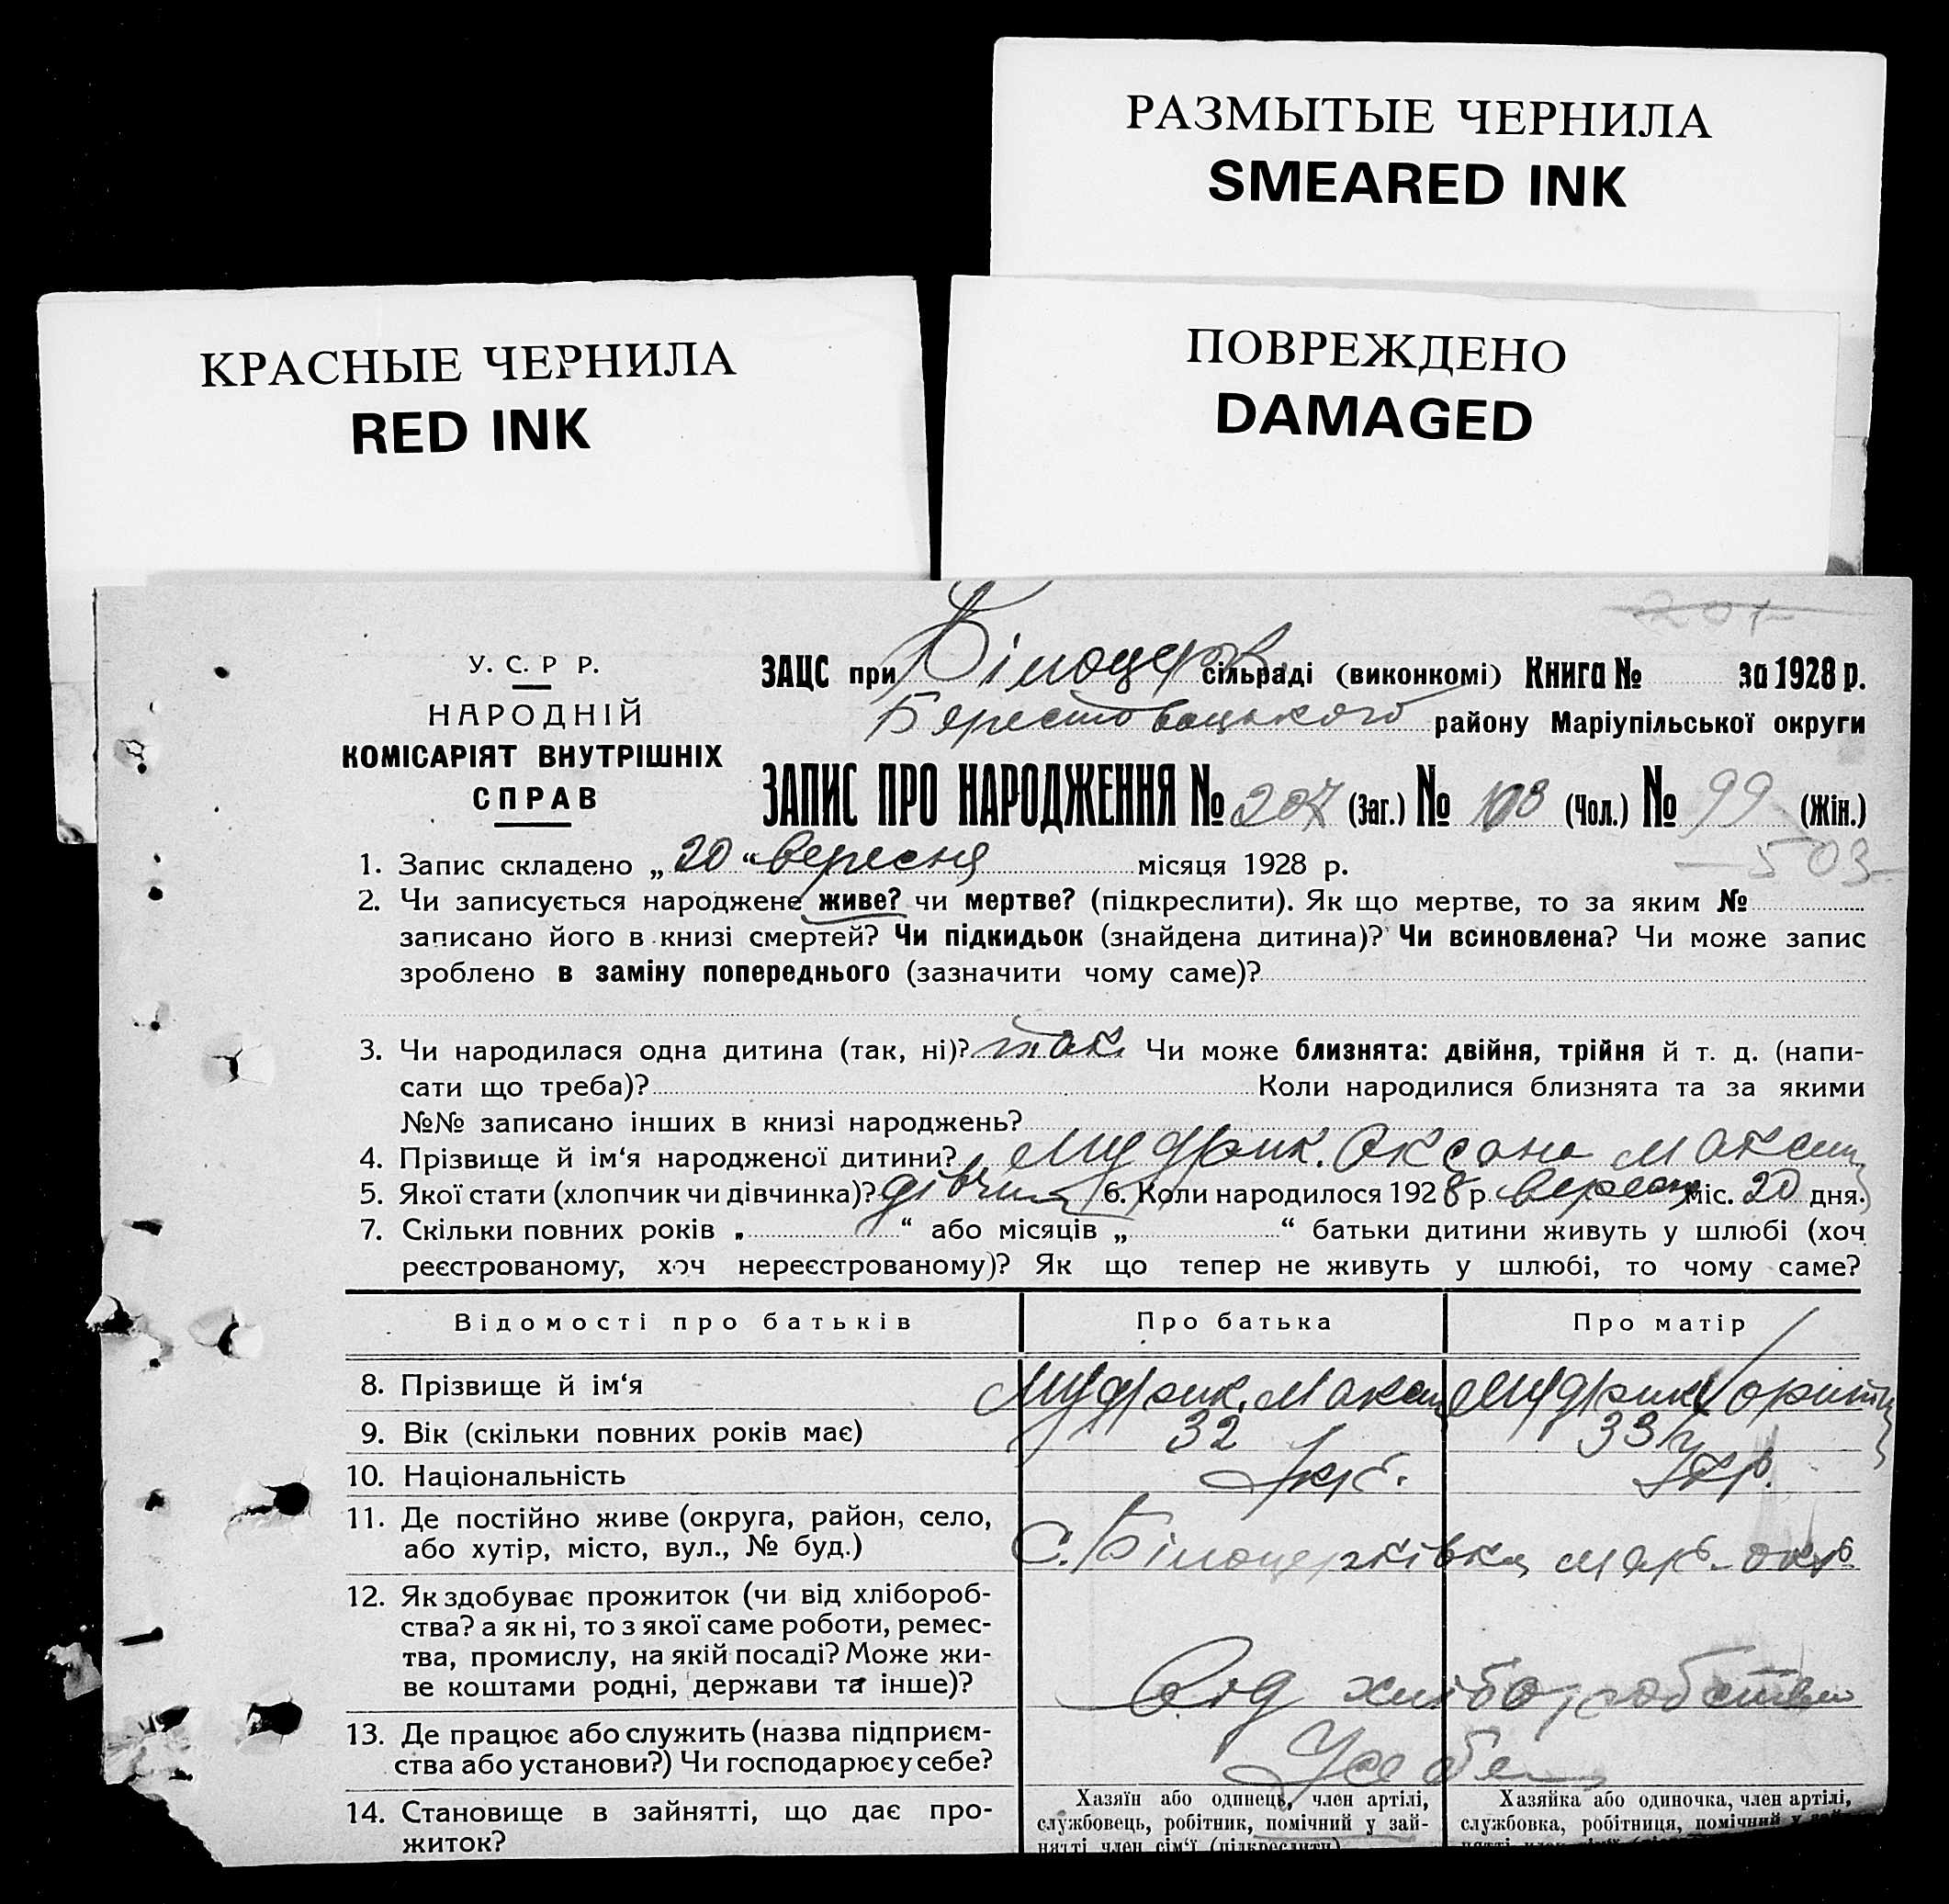 РАЗМЫТЫЕ ЧЕРНИЛА
SMEARED INK
КРАСНЫЕ ЧЕРНИЛА
RED INK
ПОВРЕЖДЕНО
DAMAGED
201
У. С. Р Р.
НАРОДНІЙ
КОМІСАРІЯТ ВНУТРІШНІХ
СПРАВ
ЗАЦС при Білоцерк. сільраді (виконкомі) Книга № за 1928 р.
Берестовацького району Маріупільської округи
ЗАПИС ПРО НАРОДЖЕННЯ № 207 (Заг.) № 108 (Чол.) № 99 (Жін.)
— 503 —
1. Запис складено „ 20 “ вересня місяця 1928 р.
2. Чи записується народжене живе? чи мертве? (підкреслити). Як що мертве, то за яким №
записано його в книзі смертей? Чи підкидьок (знайдена дитина)? Чи всиновлена? Чи може запис
зроблено в заміну попереднього (зазначити чому саме)?
3. Чи народилася одна дитина (так, ні)? так. Чи може близнята: двійня, трійня й т. д. (напи-
сати що треба)? Коли народилися близнята та за якими
№№ записано інших в книзі народжень?
4. Прізвище й ім‘я народженої дитини? Мудрик. Оксана Максим
5. Якої стати (хлопчик чи дівчинка)? дівчин 6. Коли народилося 1928 р. вересня міс. 20 дня.
7. Скільки повних років „ “ або місяців „ “ батьки дитини живуть у шлюбі (хоч
реєстрованому, хоч нереєстрованому)? Як що тепер не живуть у шлюбі, то чому саме?
Відомості про батьків Про батька Про матір
8. Прізвище й ім‘я Мудрик. Максим Мудрик
9. Вік (скільки повних років має) 32 33
10. Національність Укр. Укр.
11. Де постійно живе (округа, район, село,
або хутір, місто, вул., № буд.) С. Білоцерківка мар. окр
12. Як здобуває прожиток (чи від хлібороб-
ства? а як ні, то з якої саме роботи, ремес-
тва, промислу, на якій посаді? Може жи-
ве коштами родні, держави та інше)? Від хліборобства
13. Де працює або служить (назва підприєм-
ства або установи?) Чи господарює у себе? У себе
14. Становище в зайнятті, що дає про-
житок?
Хазяїн або одинець, член артілі,
службовець, робітник, помічний у зай-
нятті член сім‘ї (підкреслити)
Хазяйка або одиночка, член артілі,
службовка, робітниця, помічний у